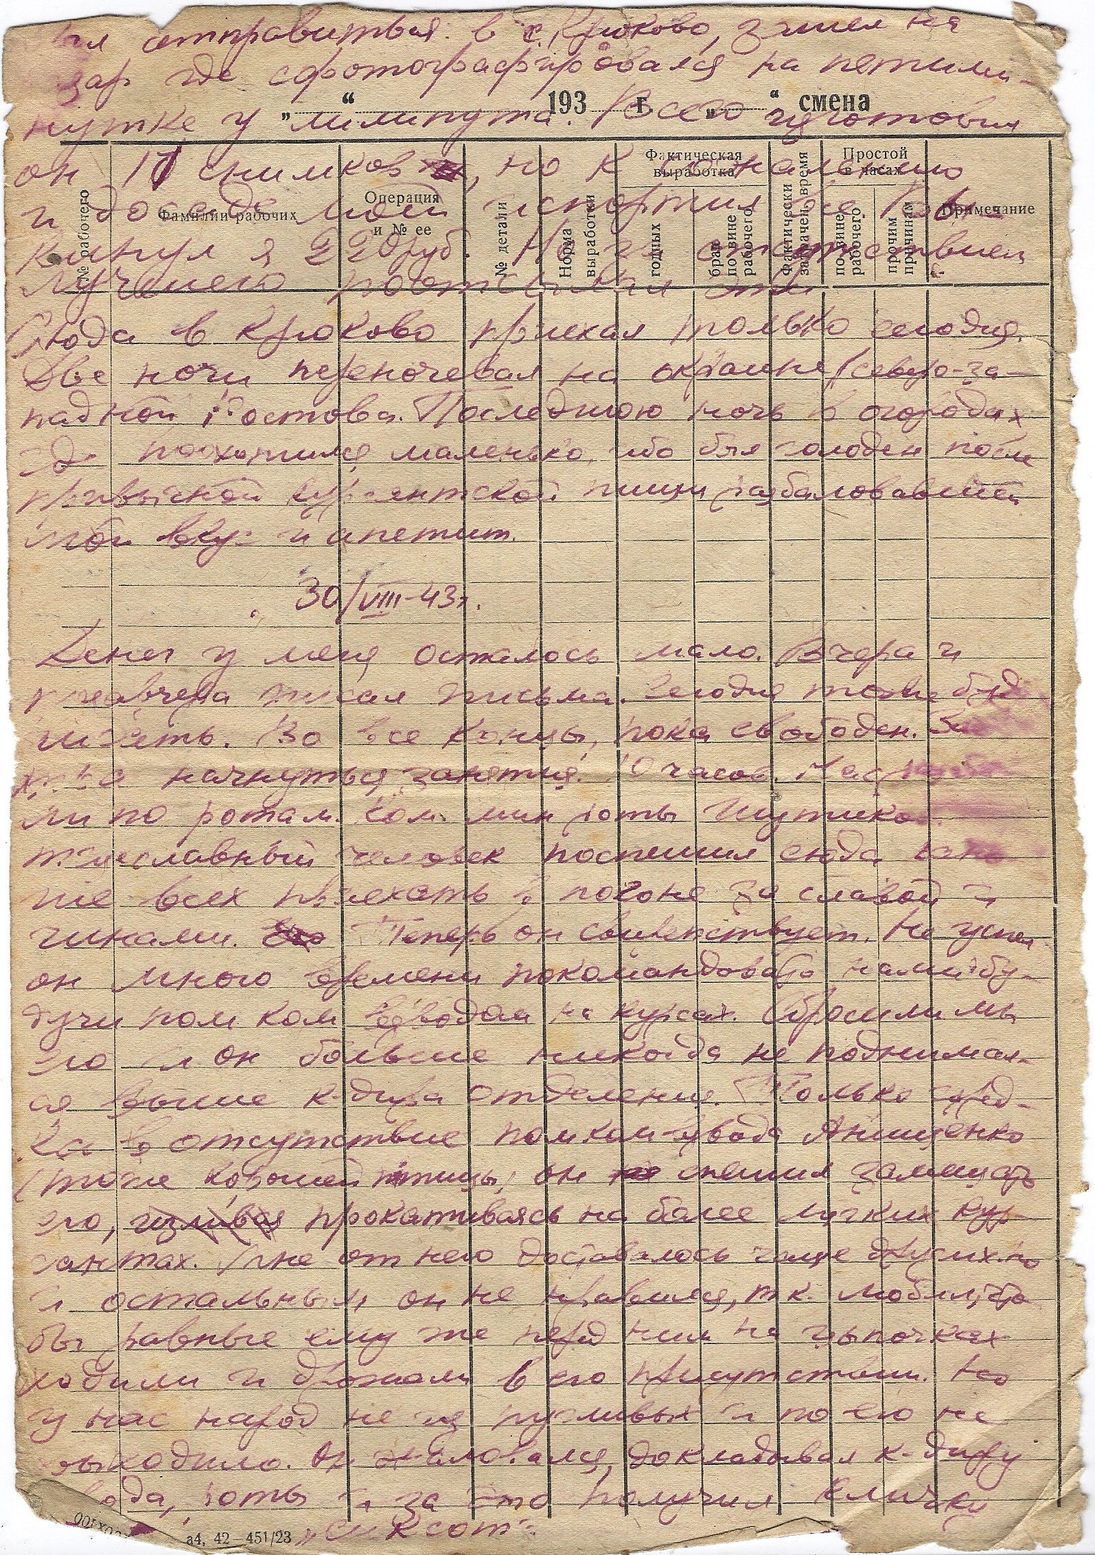 отправиться в с. Крюково, зашел на
зар где сфотографировался на пятими-
нутке у „лилипута". Всего изготовил
„ “ 193 г. „ “ смена
он 11 снимков, но к сожалению
№ рабочего Фамилии рабочих Операция и № ее № детали Норма выработки Фактическая выработка годных брак по вине рабочего Фактически затрачен. время Простой в часах по вине рабочего прочим причинам Примечание
и досаде моей испортил все.
кинул я 220 руб. Но за отсутствием
лучшего эти
Сюда в Крюково приехал только сегодня.
Две ночи переночевал на окраине (северо-за-
падной) Ростова. Последнюю ночь в огородах
где маленько, ибо был голоден после
привычной курсантской пищи, разбаловавшей
мой вкус и апетит.
30/VIII-43г.
Денег у меня осталось мало. Вчера и
позавчера писал письма. Сегодня тоже буду
писать. Во все концы, пока свободен. За
начнуться занятия. 10 часов. Нас
ли по ротам. Ком. мин роты
тщеславный человек поспешил сюда рань
ше всех приехать в погоне за славой и
чинами. Теперь он свирепствует. Не успел
он много времени покомандовать нами бу-
дучи пом ком взвода на курсах. Сбросили мы
его и он больше никогда не поднимал-
ся выше к-дира отделения. Только изред-
ка в отсутствие помком-взвода Анищенко
(тоже хорошей птицы) он спешил замещать
его, прокатываясь на более мягких кур-
сантах. Мне от него доставалось чаще других, но
и остальным он не нравился, т.к. любил, что
бы равные ему же перед ним на цыпочках
ходили и дрожали в его присутствии. Но
у нас народ не из пугливых и по его не
выходило. Он жаловался, докладывал к-диру
взвода, роты и за это получил кличку
„сиксот"
а4, 42—451/23